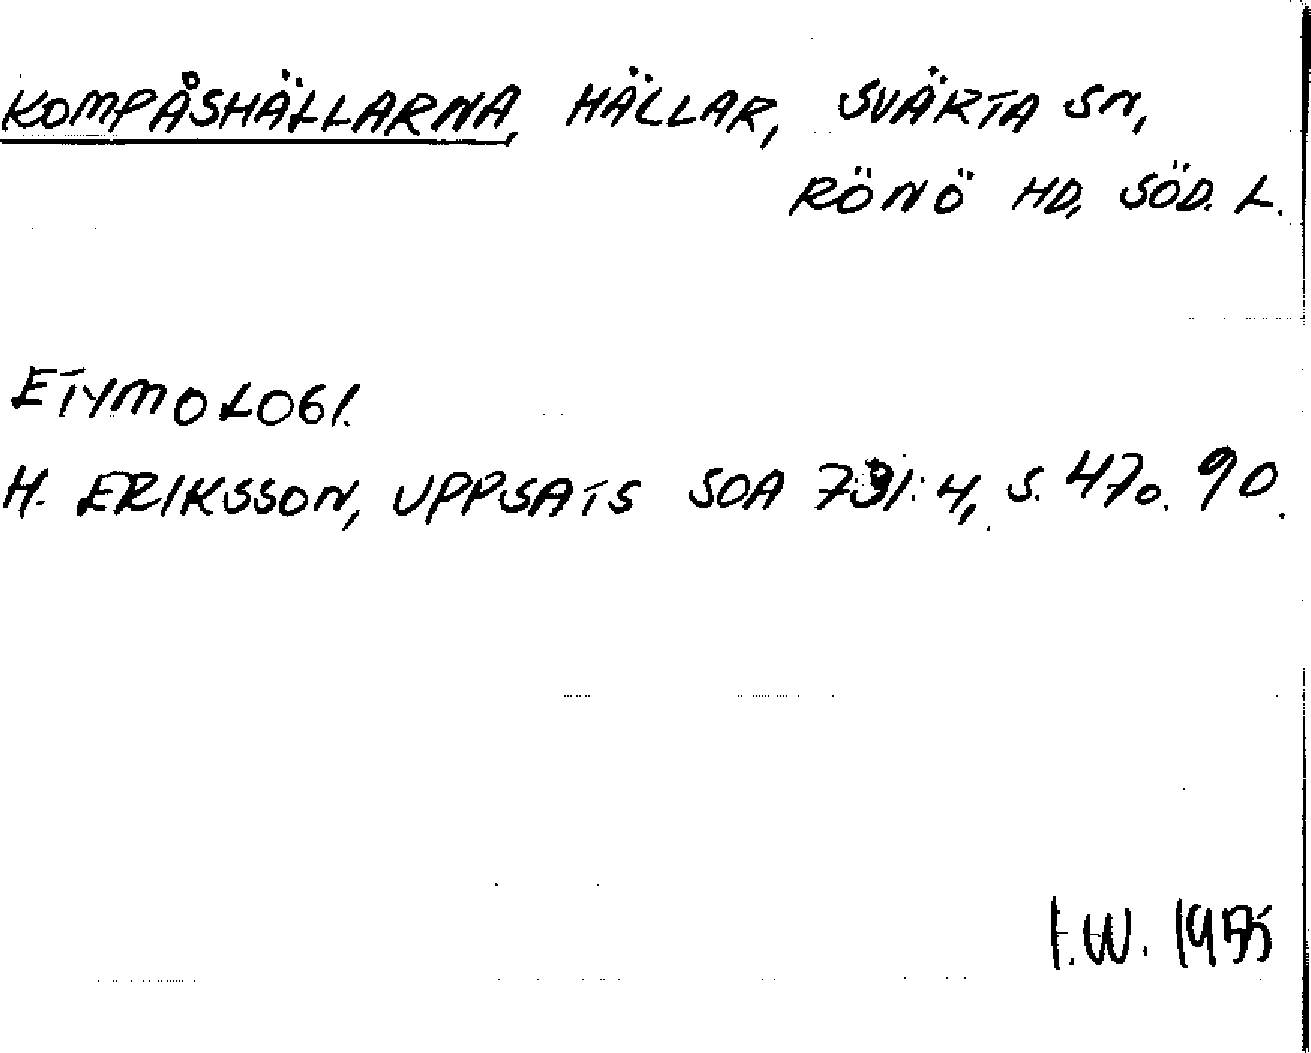 KOMPÅSHÄLLARNA, HÄLLAR, SVÄRTA SN,
RÖNÖ HD, SÖD. L.
ETYMOLOGI.
H. ERIKSSON, UPPSATS SOA 731:4, S. 47 o. 90.
I.W. 1975